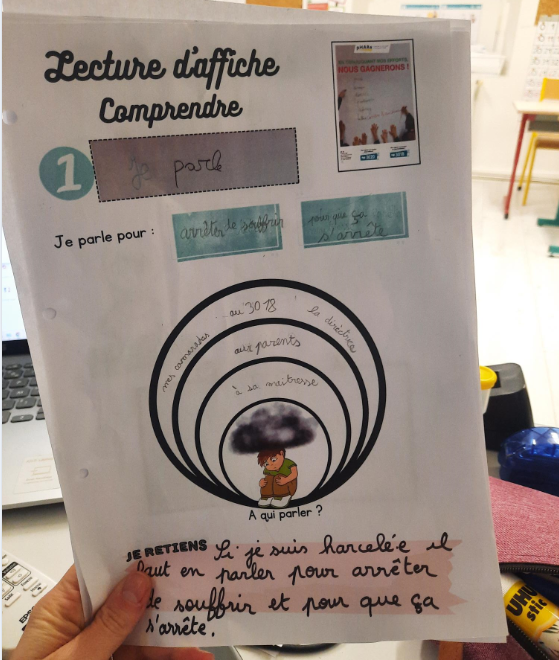 Lecture d'affiche
Comprendre
NOUS GAGNERONS !
1
je parle
Je parle pour :
arrêter de souffrir
pour que ça
s'arrête
au 3018
mes camarades
la directrice
aux parents
à sa maitresse
A qui parler ?
JE RETIENS Si je suis harcelé·e il
faut en parler pour arrêter
de souffrir et pour que ça
s'arrête.
UHU
stic